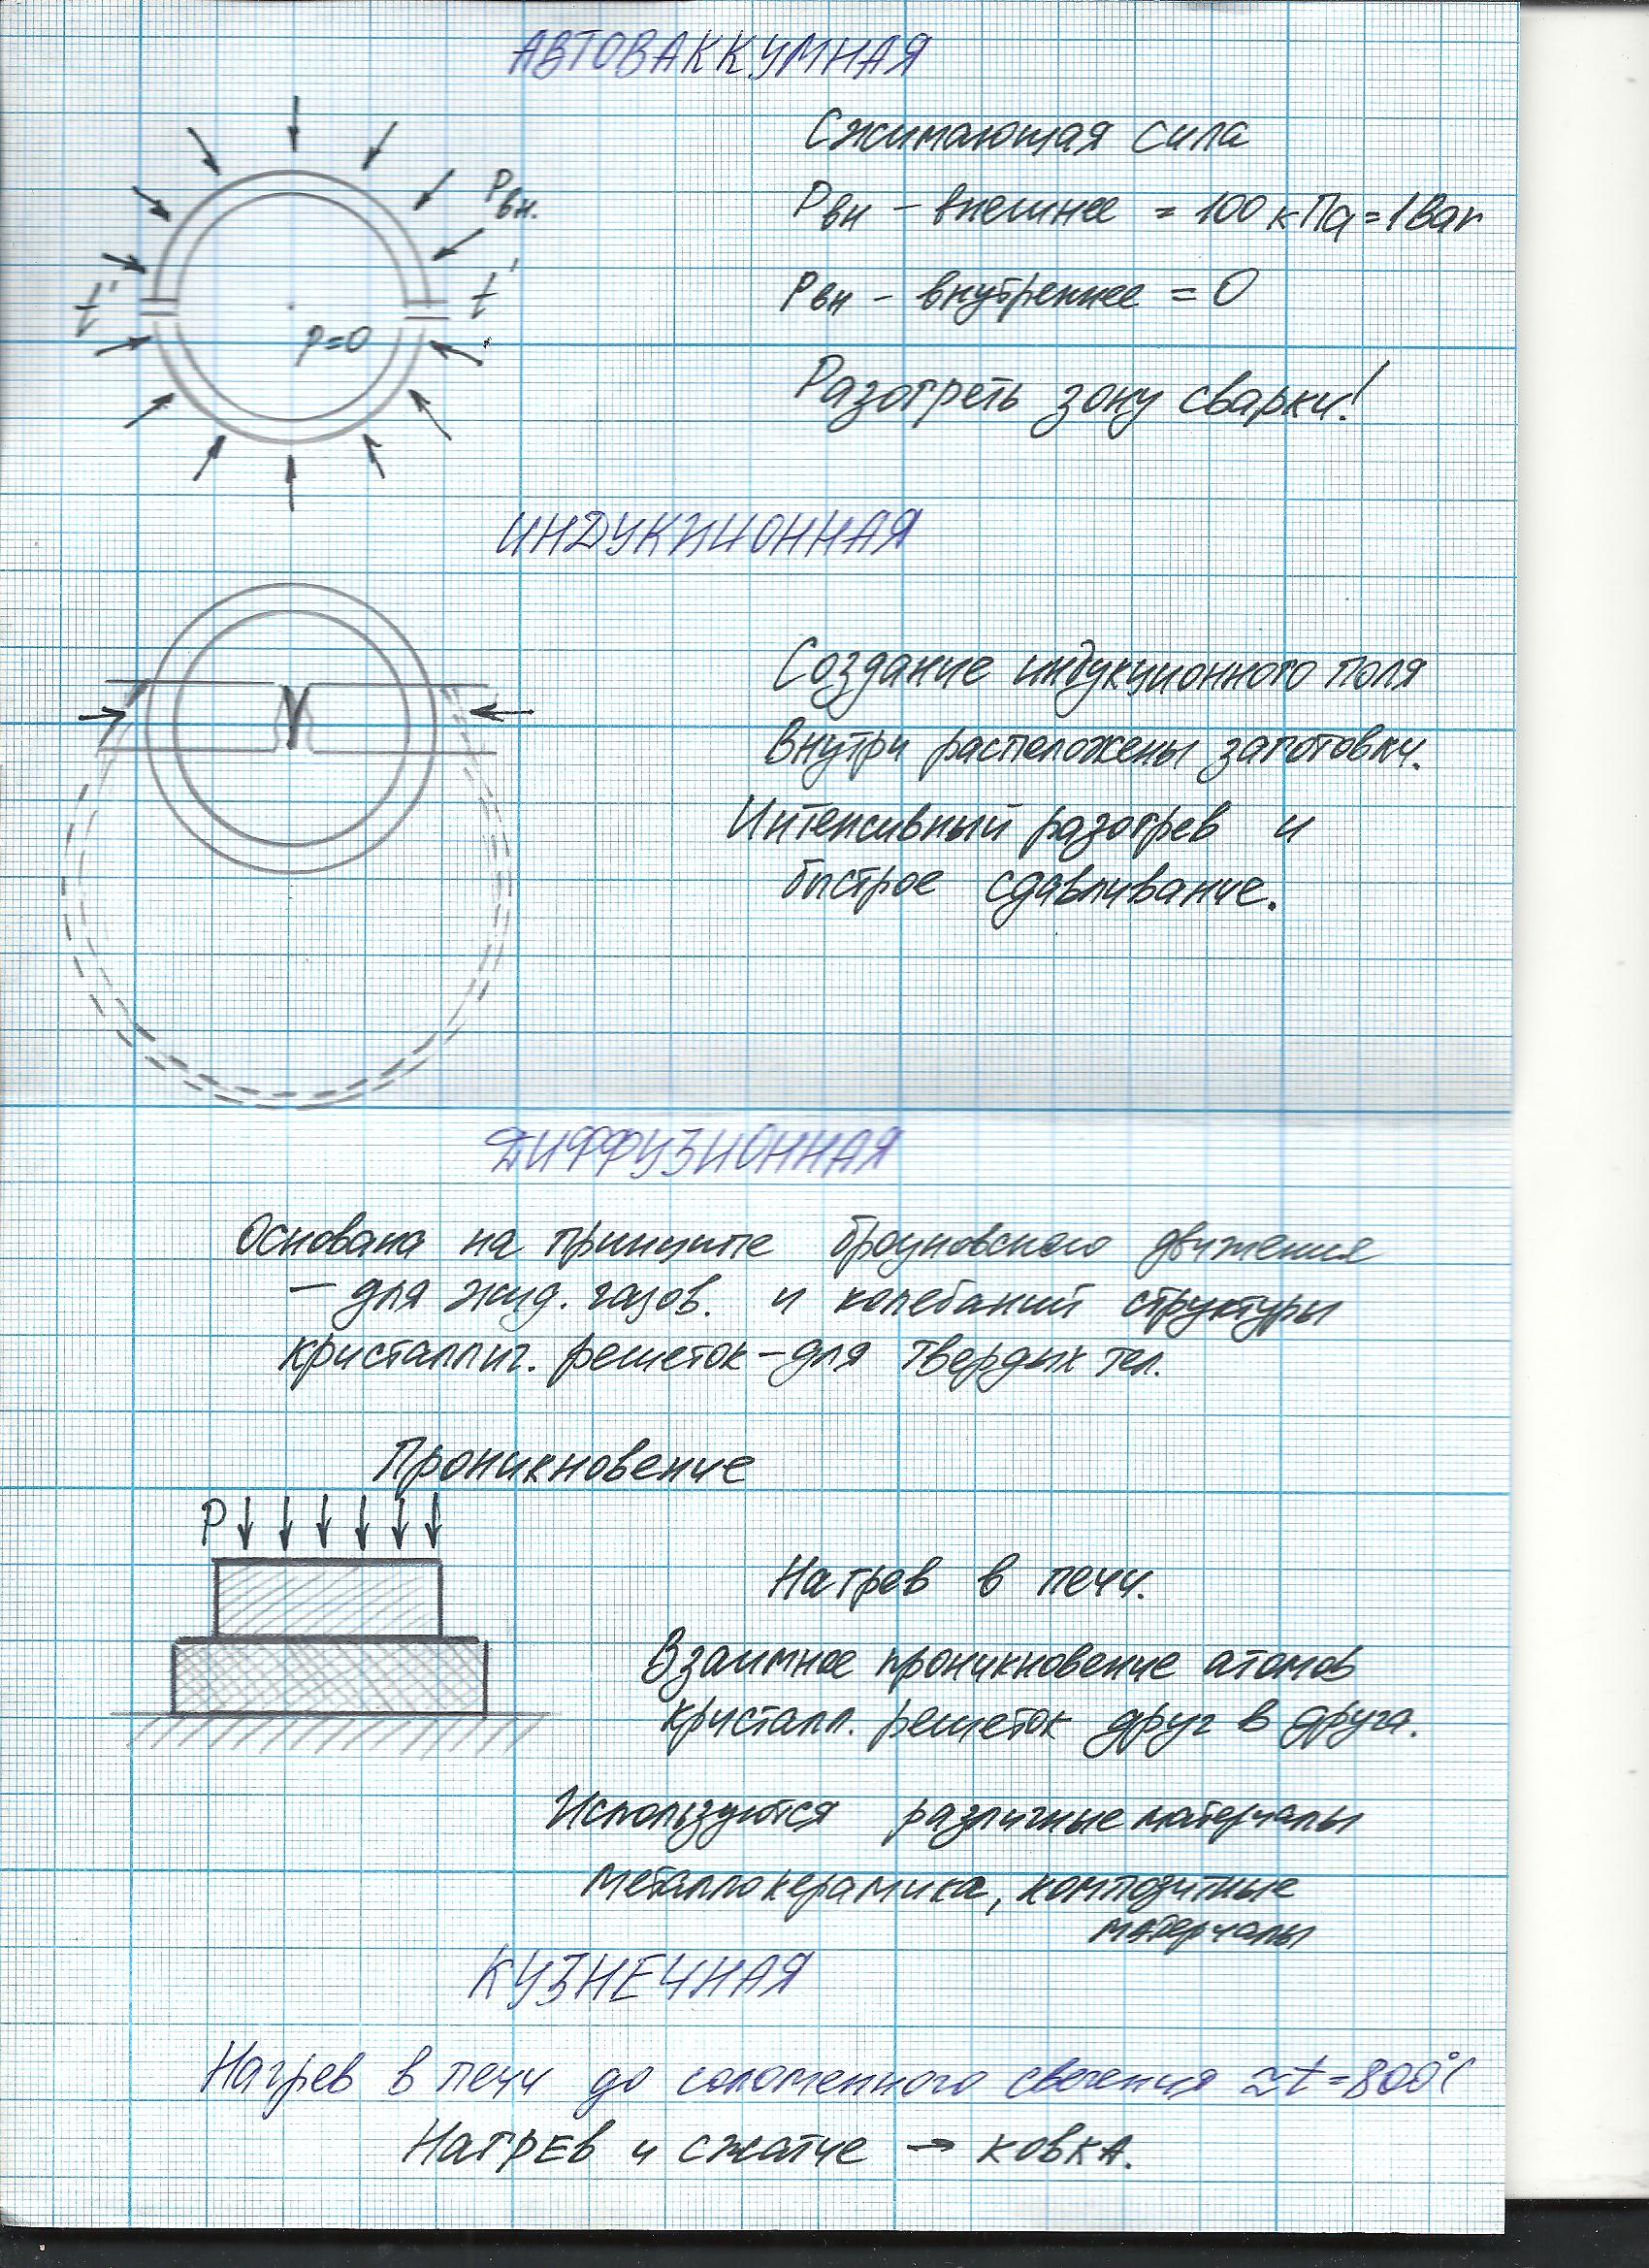 АВТОВАККУМНАЯ
Сжимающая сила
Pвн.
Pвн – внешнее = 100 кПа = 1 Bar
t'
t'
Pвн – внутреннее = 0
p=0
Разогреть зону сварки!
ИНДУКЦИОННАЯ
Создание индукционного поля
Внутри расположены заготовки.
Интенсивный разогрев и
быстрое сдавливание.
ДИФФУЗИОННАЯ
Основана на принципе броуновского движения
– для жид. газов. и колебаний структуры
кристаллич. решеток – для твердых тел.
Проникновение
P
Нагрев в печи.
Взаимное проникновение атомов
кристалл. решеток друг в друга.
Используются различные материалы
металлокерамика, композитные
материалы
КУЗНЕЧНАЯ
Нагрев в печи до соломенного свечения ≈ t = 800°C
Нагрев и сжатие → ковка.